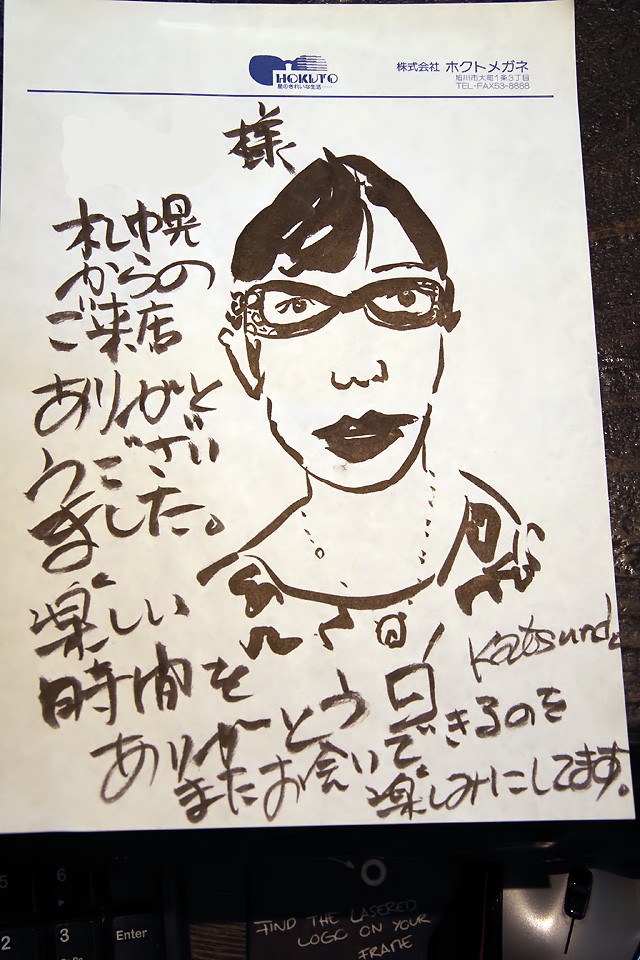 HOKUTO
星のきれいな生活……
株式会社 ホクトメガネ
旭川市大町1条3丁目
TEL・FAX53-8888
様
札幌
からの
ご来店
ありがと
うござい
ました。
楽しい
時間を
ありがとう
またお会いできるのを
楽しみにしてます。
5
6
2
3
Enter
FIND THE LASERED
LOGO ON YOUR
FRAME